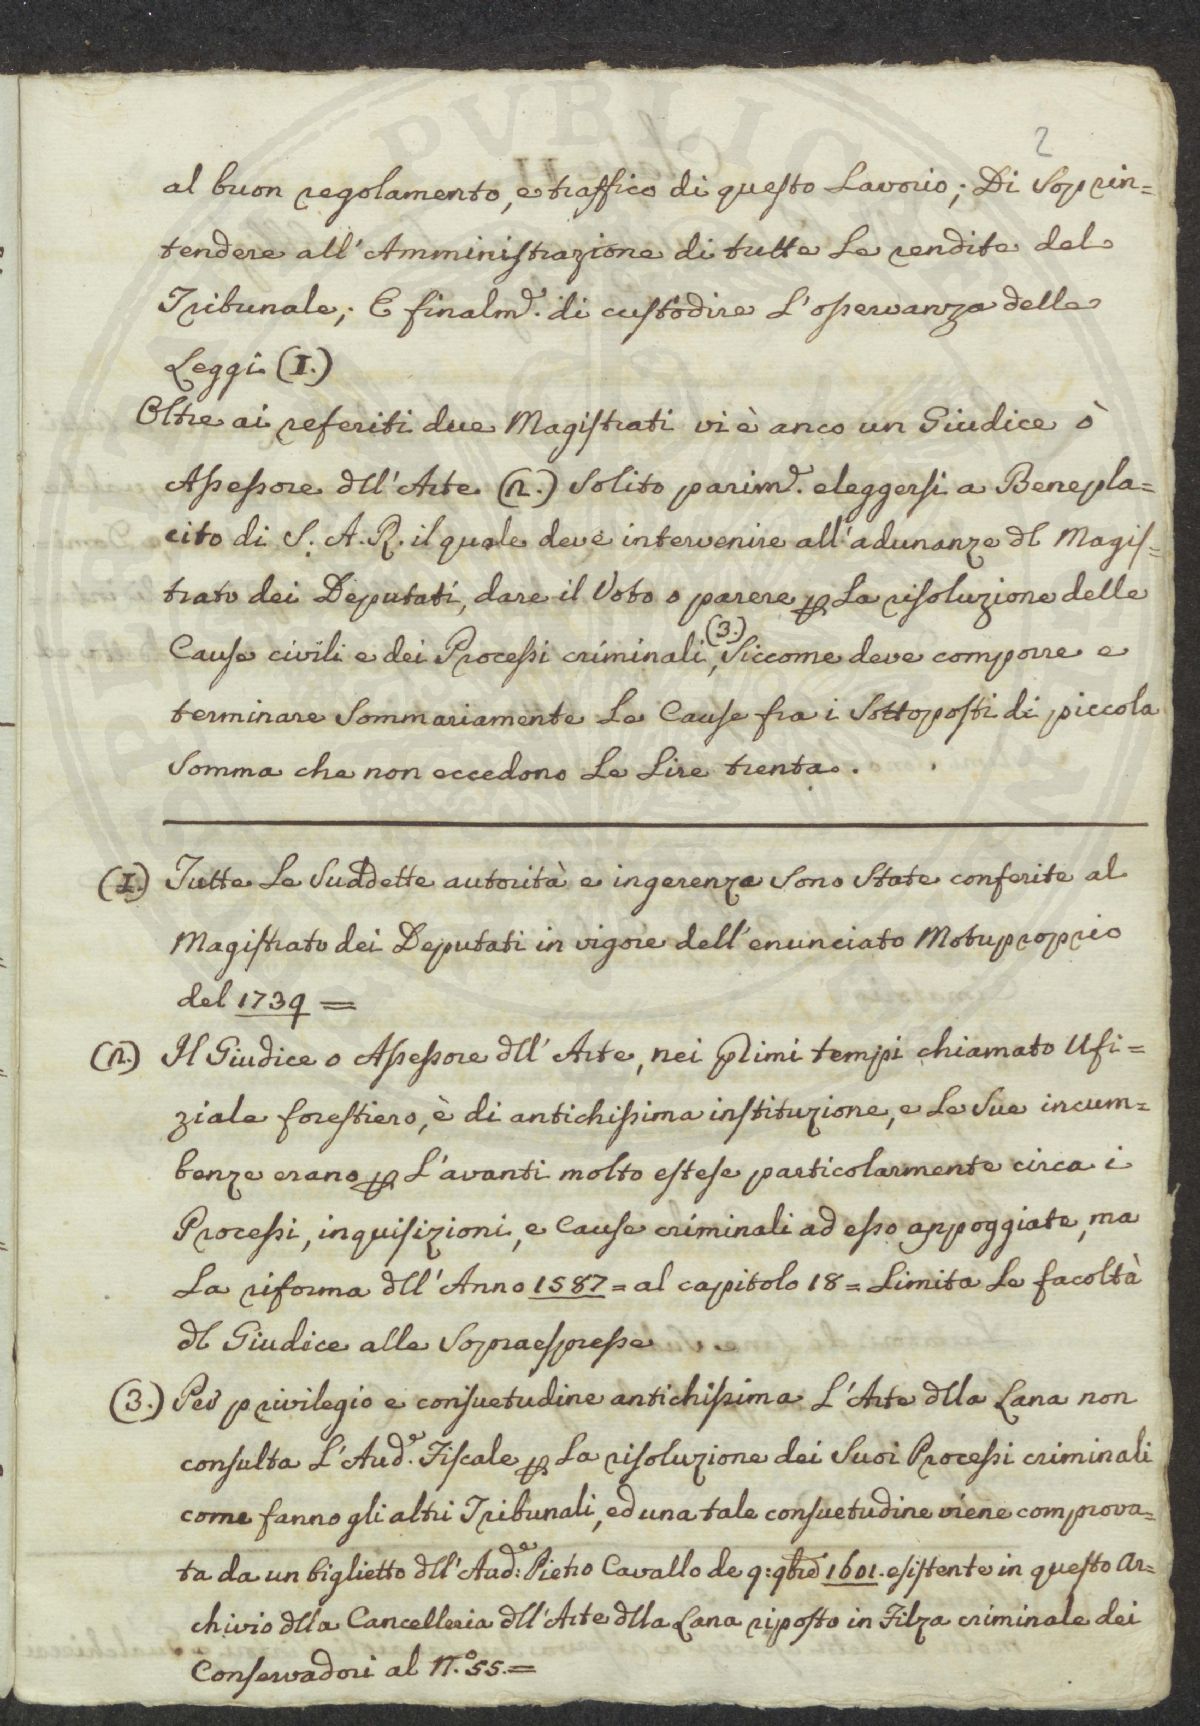 2
al buon regolamento, e traffico di questo Lavorio; Di Soprin=
tendere all'Amministrazione di tutte Le rendite del
Tribunale; E finalm.e di custodire L'osservanza delle
Leggi (1.)
Oltre ai referiti due Magistrati vi è anco un Giudice ò
Assessore dll'Arte (2.) Solito parim.e eleggersi a Benepla=
cito di S. A. R. il quale deve intervenire all'adunanze dl Magis=
trato dei Deputati, dare il Voto o parere p La risoluzione delle
Cause civili e dei Processi criminali, (3.) Siccome deve comporre e
terminare Sommariamente Le Cause fra i Sottoposti di piccola
Somma che non eccedono Le Lire trenta.
(1.) Tutte Le Suddette autorità e ingerenze Sono State conferite al
Magistrato dei Deputati in vigore dell'enunciato Motuproprio
del 1739 =
(2.) Il Giudice o Assessore dll'Arte, nei primi tempi chiamato Ufi=
ziale forestiero, è di antichissima instituzione, e Le Sue incum=
benze erano p L'avanti molto estese particolarmente circa i
Processi, inquisizioni, e Cause criminali ad esso appoggiate, ma
La riforma dll'Anno 1587 = al capitolo 18 = Limita Le facoltà
dl Giudice alle Sopraespresse
(3.) Per privilegio e consuetudine antichissima L'Arte dlla Lana non
consulta L'Aud.e Fiscale p La risoluzione dei Suoi Processi criminali
come fanno gli altri Tribunali, ed una tale consuetudine viene comprova=
ta da un biglietto dll'Aud.e Pietro Cavallo de 9: 9bre 1601. esistente in questo Ar=
chivio dlla Cancelleria dll'Arte dlla Lana riposto in Filza criminale dei
Conservadori al N.o 55. =
PVBLIC